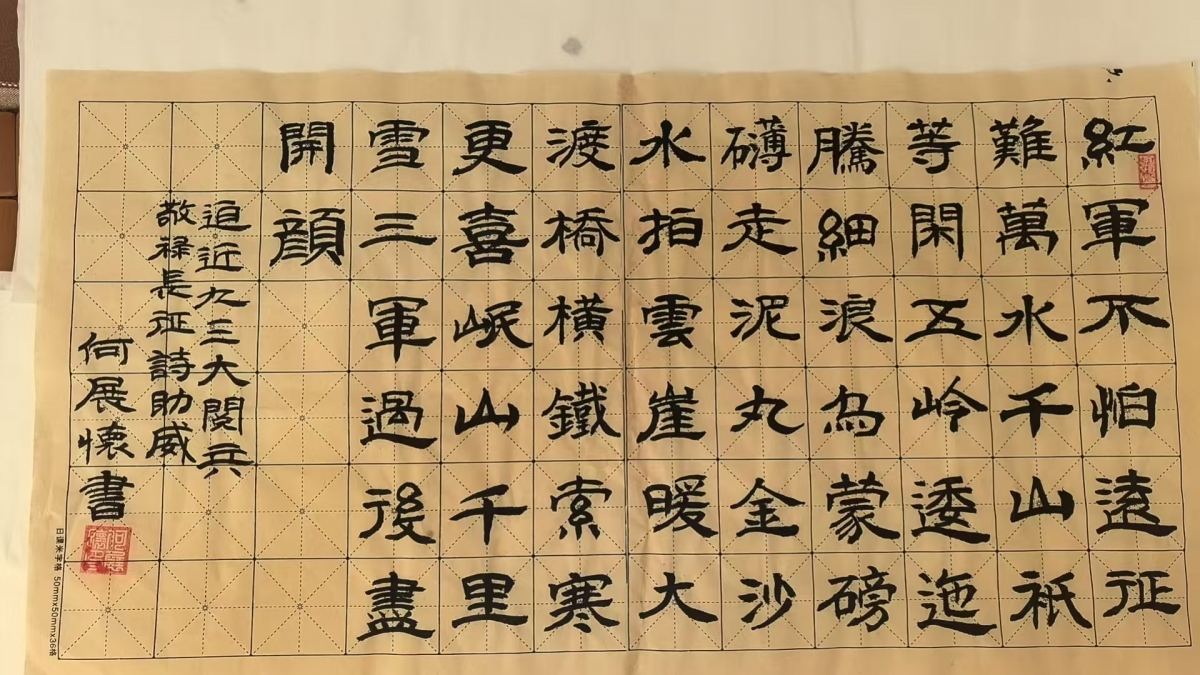 紅軍不怕遠征
難萬水千山祇
等閑五岭逶迤
騰細浪烏蒙磅
礴走泥丸金沙
水拍雲崖暖大
渡橋横鐵索寒
更喜岷山千里
雪三軍過後盡
開顔
迫近九三大閱兵
敬祿長征詩助威
何展懷書
日课米字格 50mmx50mmx36格